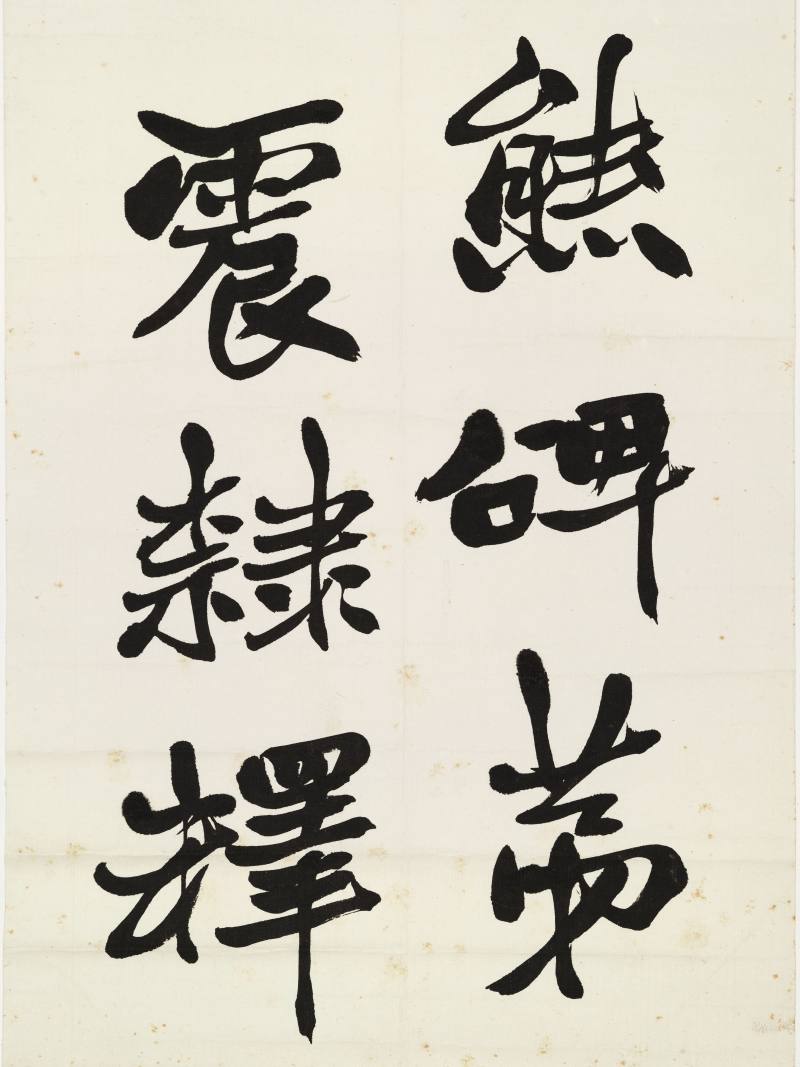 熊碑蕩
震隸釋